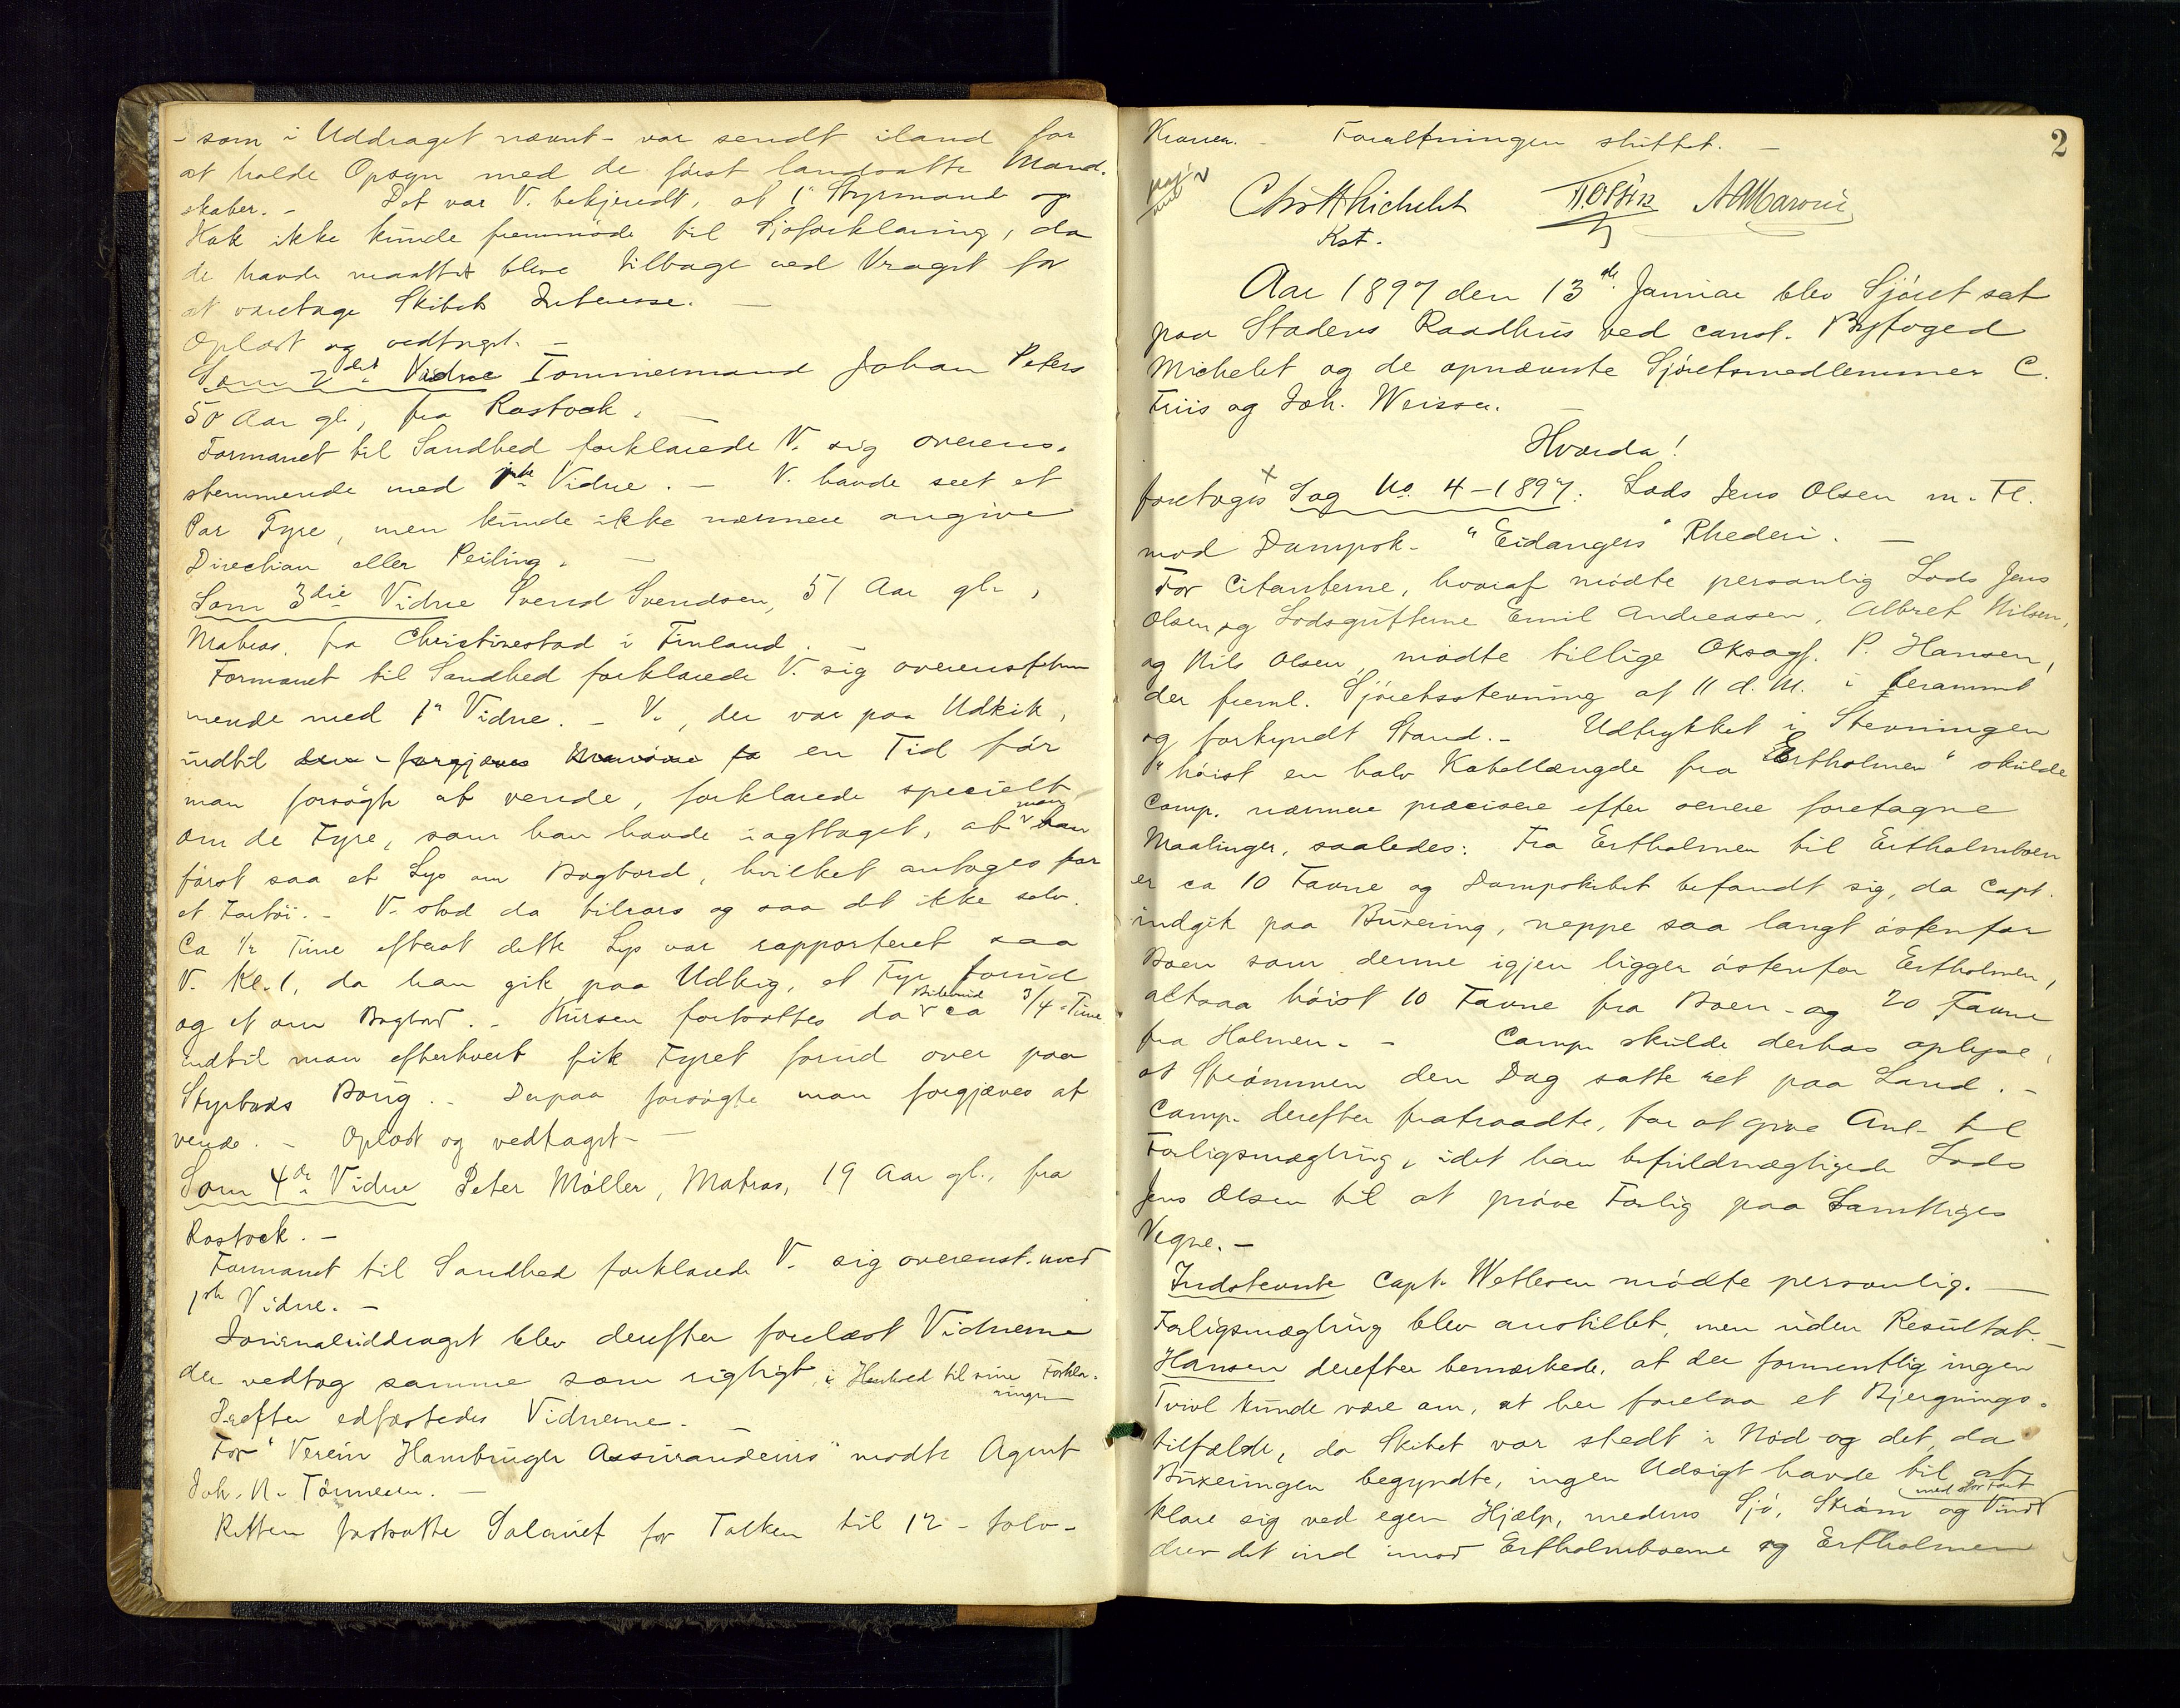 - som i Uddraget nævnt - var sendt iland for
at holde Opsyn med de först landsatte Mand-
skaber. - Det var V. bekjendt, at 1ste Styrmand og
Kok ikke kunde fremmöde til Sjöforklaring, da
de havde maattet blive tilbage ved Vraget for
at varetage Skibets Interesse. -
Oplæst og vedtaget. -
Som 2det Vidne Tømmermand Johan Peters
50 Aar gl., fra Rostock. -
Formanet til Sandhed forklarede V. sig overens-
stemmende med 1ste Vidne. - V. havde seet et
Par Fyre, men kunde ikke nærmere angive
Direction eller Peiling. -
Som 3die Vidne Svend Svendsen, 51 Aar gl.,
Matros, fra Christinestad i Finland. -
Formanet til Sandhed forklarede V. sig overenstem
mende med 1ste Vidne. - V., der var paa Udkik,
indtil en Tid för
man forsögte at vende, forklarede specielt
om de Fyre, som han havde iagttaget, at man
först saa et Lys om Bagbord, hvilket antoges for
et Fartöi. - V. stod da tilrors og saa det ikke selv.
Ca 1/2 Time efterat dette Lys var rapporteret saa
V. Kl. 1, da han gik paa Udkig, et Fyr forud
og et om Bagbord. - Kursen fortsattes da Bidevind ca 3/4 Time
indtil man efterhvert fik Fyret forud over paa
Styrbords Boug. - Derpaa forsögte man forgjæves at
vende. - Oplæst og vedtaget -
Som 4de Vidne Peter Möller, Matros, 19 Aar gl., fra
Rostock. -
Formanet til Sandhed forklarede V. sig overenst. med
1ste Vidne. -
Journaluddraget blev derefter forelæst Vidnerne
der vedtog samme som rigtigt i Henhold til sine Forkla-
ringer
Derefter edfæstedes Vidnerne. -
For "Verein Hamburger Assuradeure" mødte Agent
Joh. N. Tönnesen. -
Retten fastsatte Salairet for Tolken til 12 - tolv -
2
Kroner. - Forretningen sluttet. -
Chr Michelet
Kst.
Aar 1897 den 13de Januar blev Sjöret sat
paa Stadens Raadhus ved const. Byfoged
Michelet og de opnævnte Sjöretsmedlemmer C.
Friis og Joh. Weisser.
Hvorda!
foretoges Sag No. 4-1897: Lods Jens Olsen m. Fl.
mod Dampsk. "Eidangers" Rhederi. -
For Citanterne, hvoraf mödte personlig Lods Jens
Olsen og Lodsgutterne Emil Andreasen, Albret Nilsen,
og Nils Olsen, mödte tillige Oksagf. P. Hansen,
der freml. Sjöretsstevning af 11 d. M. i berammet
og forkyndt Stand. - Udtrykket i Stevningen
"höist en halv Kabellængde fra Ertholmen" skulde
Comp. nærmere præcisere efter senere foretagne
Maalinger, saaledes: Fra Ertholmen til Ertholmboen
er ca 10 Favne og Dampskibet befandt sig, da Capt.
indgik paa Buxering, neppe saa langt östenfor
Boen som denne igjen ligger östenfor Ertholmen,
altsaa höist 10 Favne fra Boen - og 20 Favne
fra Holmen. - Comp. skulde derhos oplyse,
at Strömmen den Dag satte ret paa Land. -
Comp. derefter fratraadte, for at give Anl. til
Forligsmægling, idet han befuldmægtigede Lods
Jens Olsen til at pröve Forlig paa Samtliges
Vegne. -
Indstevnte Capt. Wetlesen mödte personlig. -
Forligsmægling blev anstillet, men uden Resultat. -
Hansen derefter bemærkede, at der formentlig ingen
Tvivl kunde være om, at her forelaa et Bjergnings-
tilfælde, da Skibet var stedt i Nöd og det, da
Buxeringen begyndte, ingen Udsigt havde til at
klare sig ved egen Hjælp, medens Sjö, Ström og Vind med stor Fart
drev det ind imod Ertholmboerne og Ertholmen